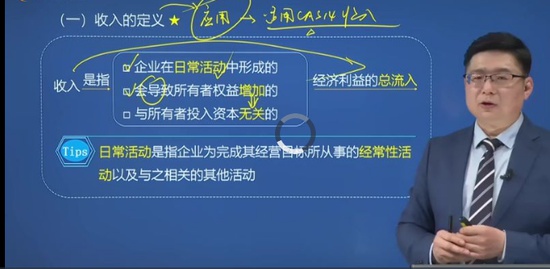 (一)收入的定义 ★ 应用 → 适用CAS14收入
□ 企业在日常活动中形成的
收入是指 □ 会导致所有者权益增加的 经济利益的总流入
□ 与所有者投入资本无关的
Tips 日常活动是指企业为完成其经营目标所从事的经常性活
动以及与之相关的其他活动